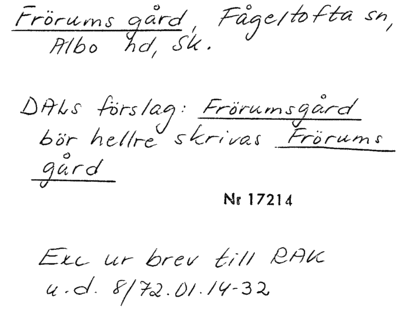 Frörums gård, Fågeltofta sn,
Albo hd, Sk.
DALs förslag: Frörumsgård
bör hellre skrivas Frörums
gård
Nr 17214
Exc ur brev till RAK
u.d. 8/72.01.14-32